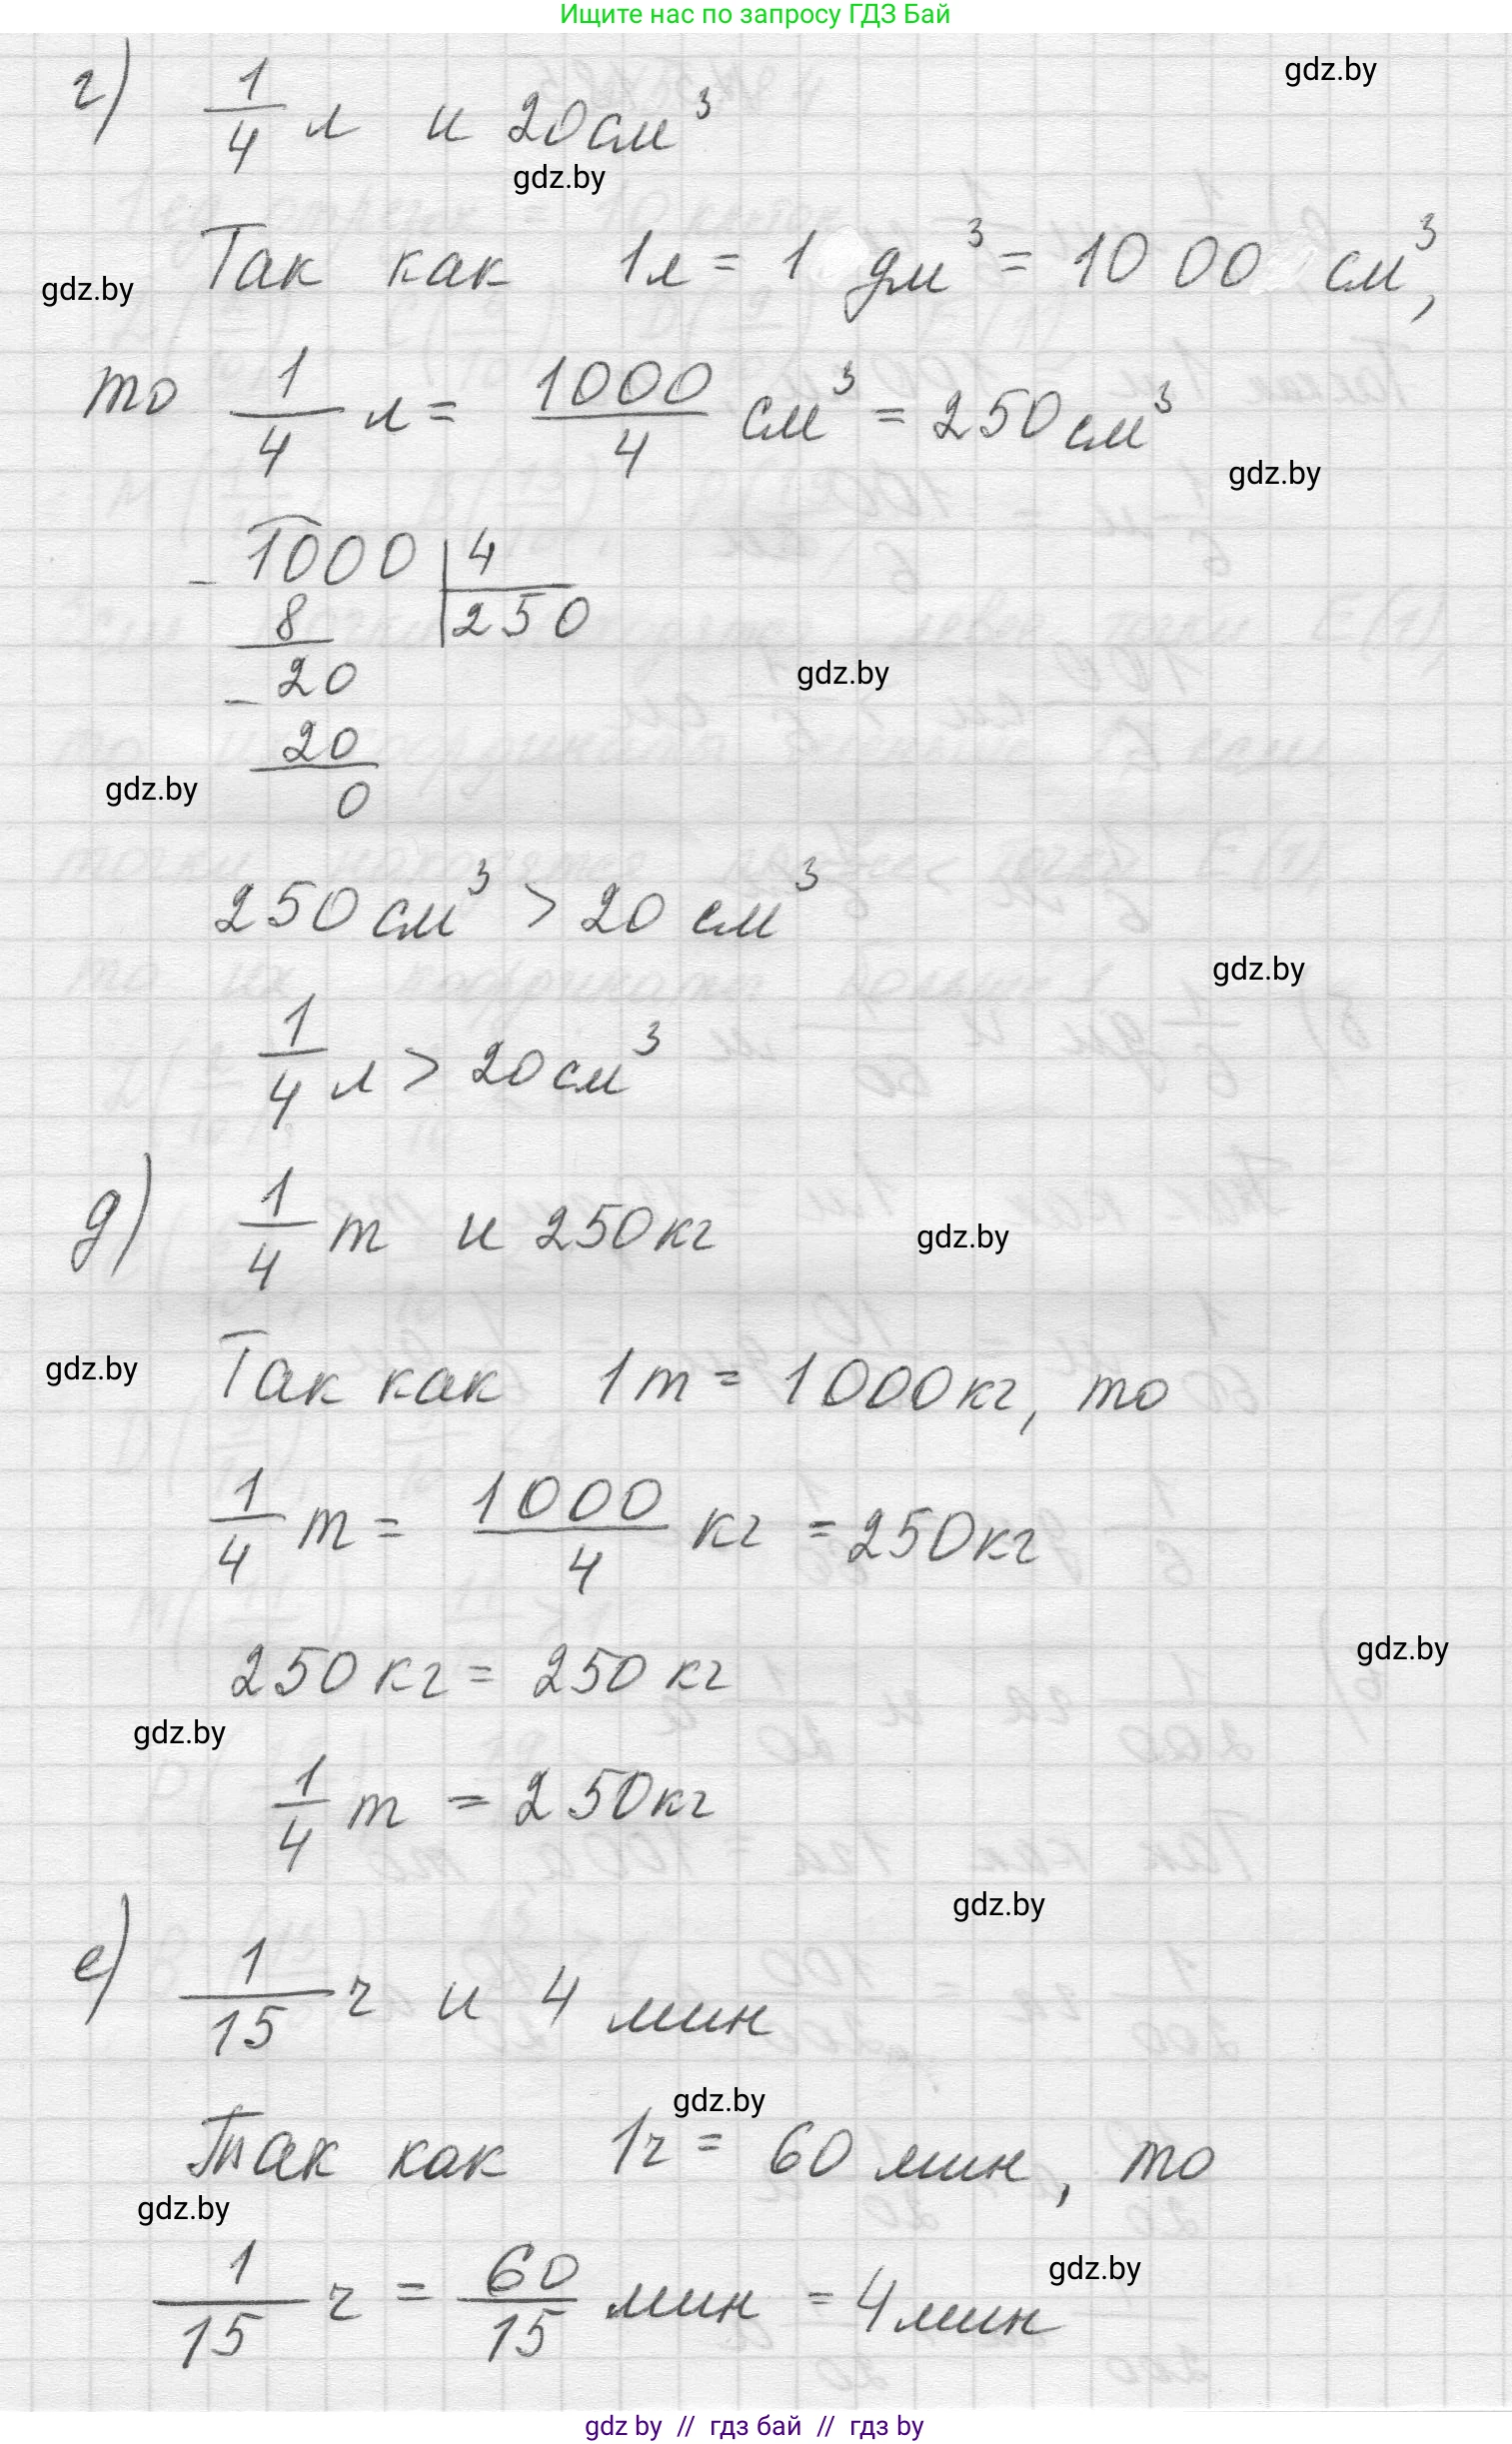 Ищите нас по запросу ГДЗ Бай
gdz.by
г) 1/4 л и 20 см³
gdz.by
Так как 1л = 1 дм³ = 1000 см³,
gdz.by
то 1/4 л = 1000/4 см³ = 250 см³
gdz.by
- 1000 | 4
8 | 250
- 20
gdz.by
20
0
gdz.by
250 см³ > 20 см³
gdz.by
1/4 л > 20 см³
д) 1/4 т и 250 кг
gdz.by
Так как 1т = 1000 кг, то
gdz.by
1/4 т = 1000/4 кг = 250 кг
250 кг = 250 кг
gdz.by
gdz.by
1/4 т = 250 кг
gdz.by
е) 1/15 ч и 4 мин
gdz.by
Так как 1ч = 60 мин, то
gdz.by
1/15 ч = 60/15 мин = 4 мин
gdz.by
gdz by // гдз бай // гдз by